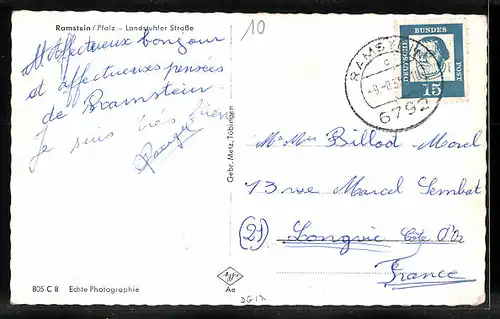 Ramstein / Pfalz – Landstuhler Straße
10
Affectueux bonjour
et affectueuses pensées
de Ramstein.
Je suis très bien
Gebr. Metz, Tübingen
DEUTSCHE
BUNDES
POST
15
RAMSTEIN
6792
Billod-Morel
13 rue Marcel Sembat
(21) Longvic Côte d'Or
France
805 C 8 Echte Photographie
Agfa
Ae